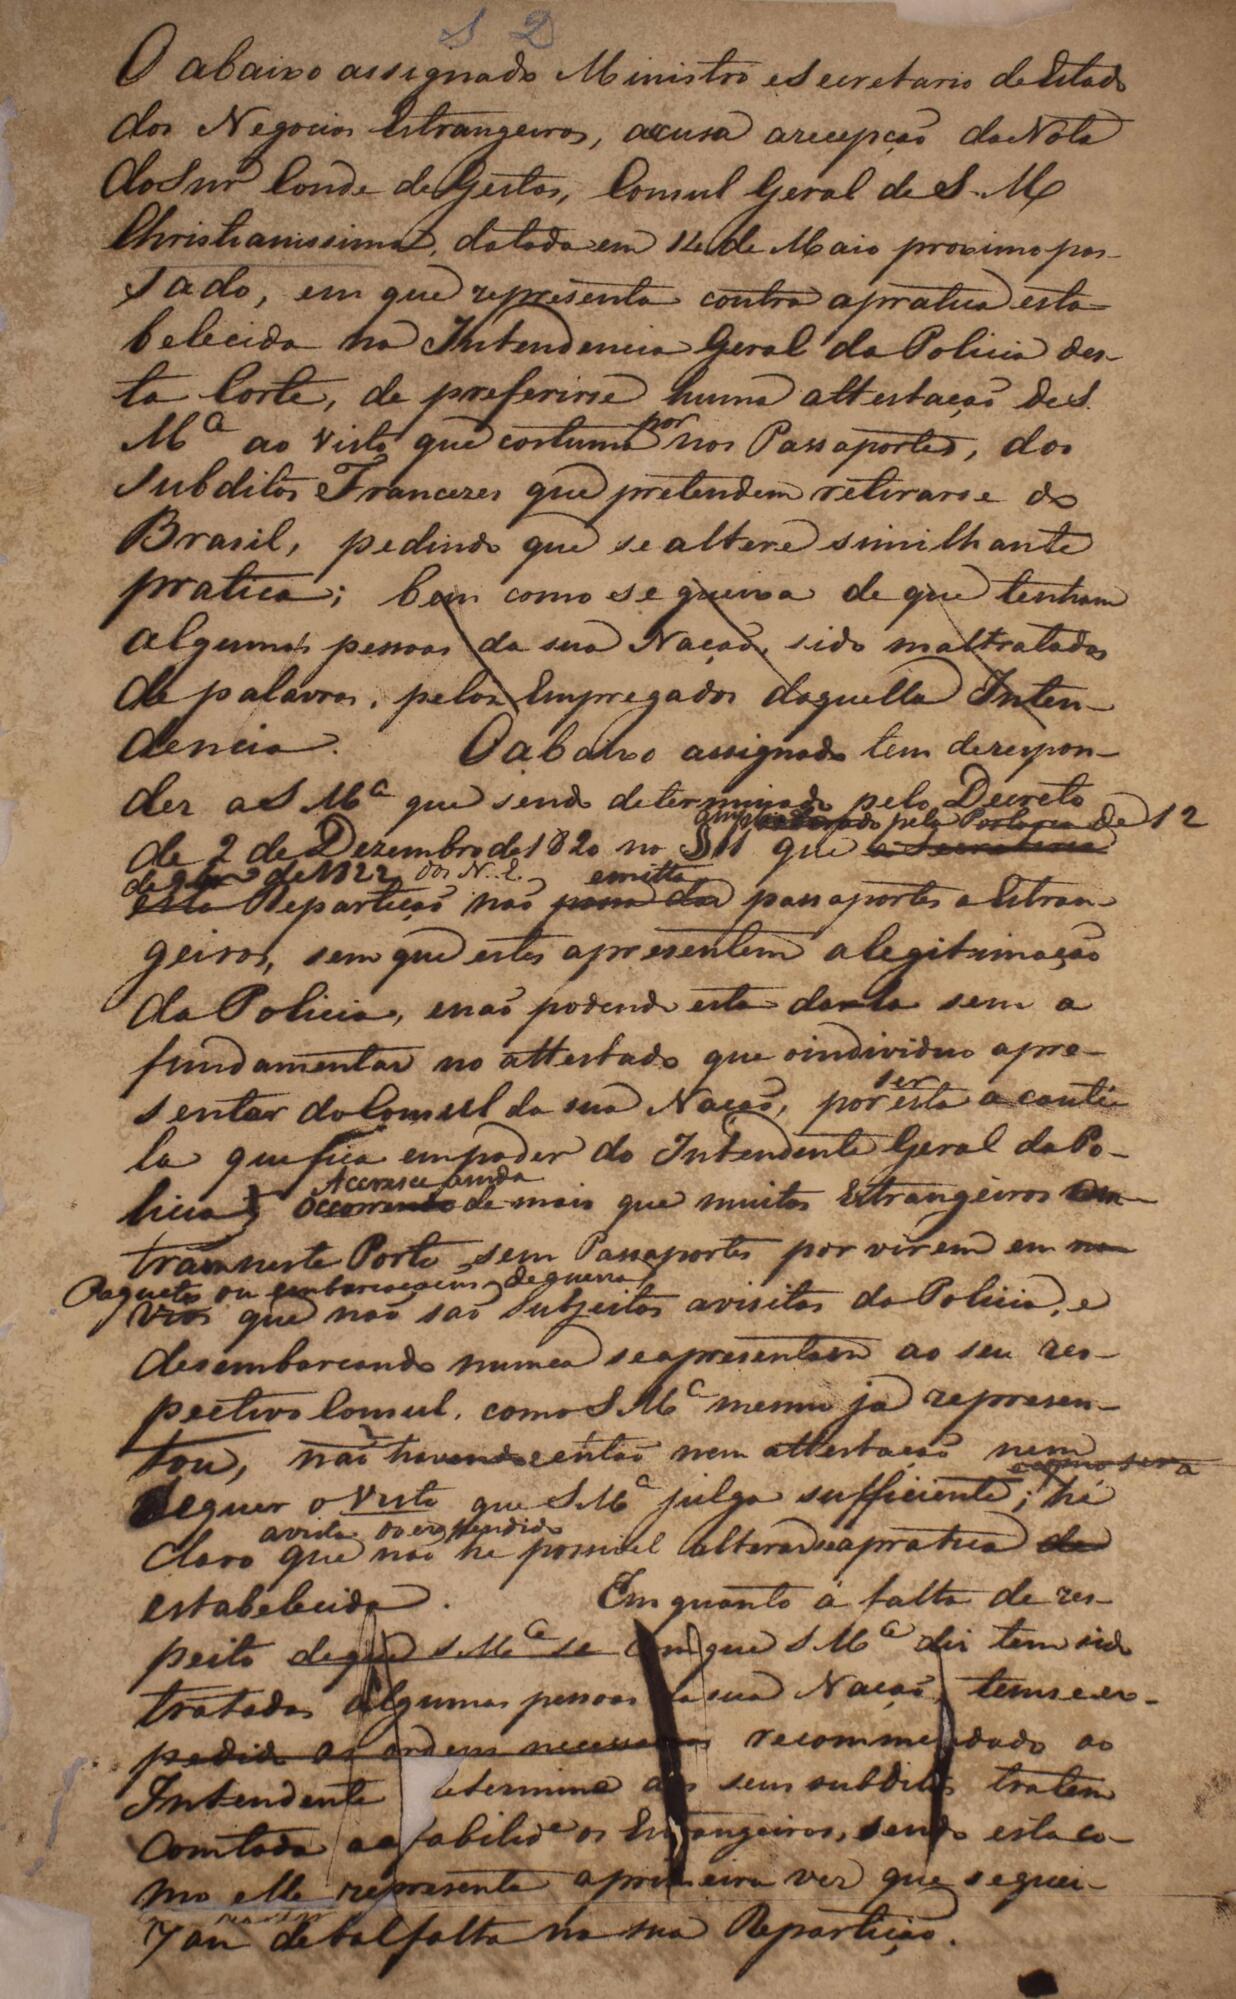 S D
O abaixo assignado Ministro e Secretario de Estado
dos Negocios Estrangeiros, accusa a recepção da Nota
do Snr Conde de Gestas, Consul Geral de S. M
Christianissima, datada em 14 de Maio proximo pas-
sado, em que representa contra a pratica esta-
belecida na Intendencia Geral da Policia des-
ta Corte, de preferirse huma attestação de S.
Mª ao visto que costuma por nos Passaportes, dos
subditos Francezes que pretendem retirarse do
Brasil, pedindo que se altere similhante
pratica; bem como se queixa de que tenham
algumas pessoas da sua Nação, sido maltratadas
de palavras, pelos Empregados daquella Inten-
dencia. O abaixo assignado tem de respon-
der a S Mª que sendo determinado pelo Decreto
ampliado pela Portaria de 12
de 2 de Dezembro de 1820 no § 11 que a Secretaria
de 1822 dos N. E. emitta
esta Repartição não possa dar passaportes a Estran-
geiros, sem que estes apresentem a legitimação
da Policia, e não podendo esta darla sem a
fundamentar no attestado que o individuo apre-
sentar do Consul da sua Nação, por ser esta a caute-
la que fica em poder do Intendente Geral da Po-
Accresce ainda
licia; Occorrendo de mais que muitos Estrangeiros en-
tram neste Porto sem Passaportes por virem em na-
Paquetes ou embarcações de guerra
vios que não são subjeitos a visitas da Policia, e
desembarcando nunca se apresentam ao seu res-
pectivo Consul, como S Mª mesmo já represen-
tou, não havendo então nem attestação nem
sequer o Visto que S Mª julga sufficiente; hé
a vista do expendido
claro que não he possivel alterar se a pratica da
estabelecida. Em quanto á falta de res-
peito de que S Mª se com que S Mª diz tem sido
tratadas algumas pessoas da sua Nação, tem se ex-
pedido as ordens necessarias recommendado ao
Intendente determine aos seus subditos tratem
com toda a afabilide os Estrangeiros, sendo esta co-
mo elle representa a primeira vez que se quei-
xam de tal falta na sua Repartição.